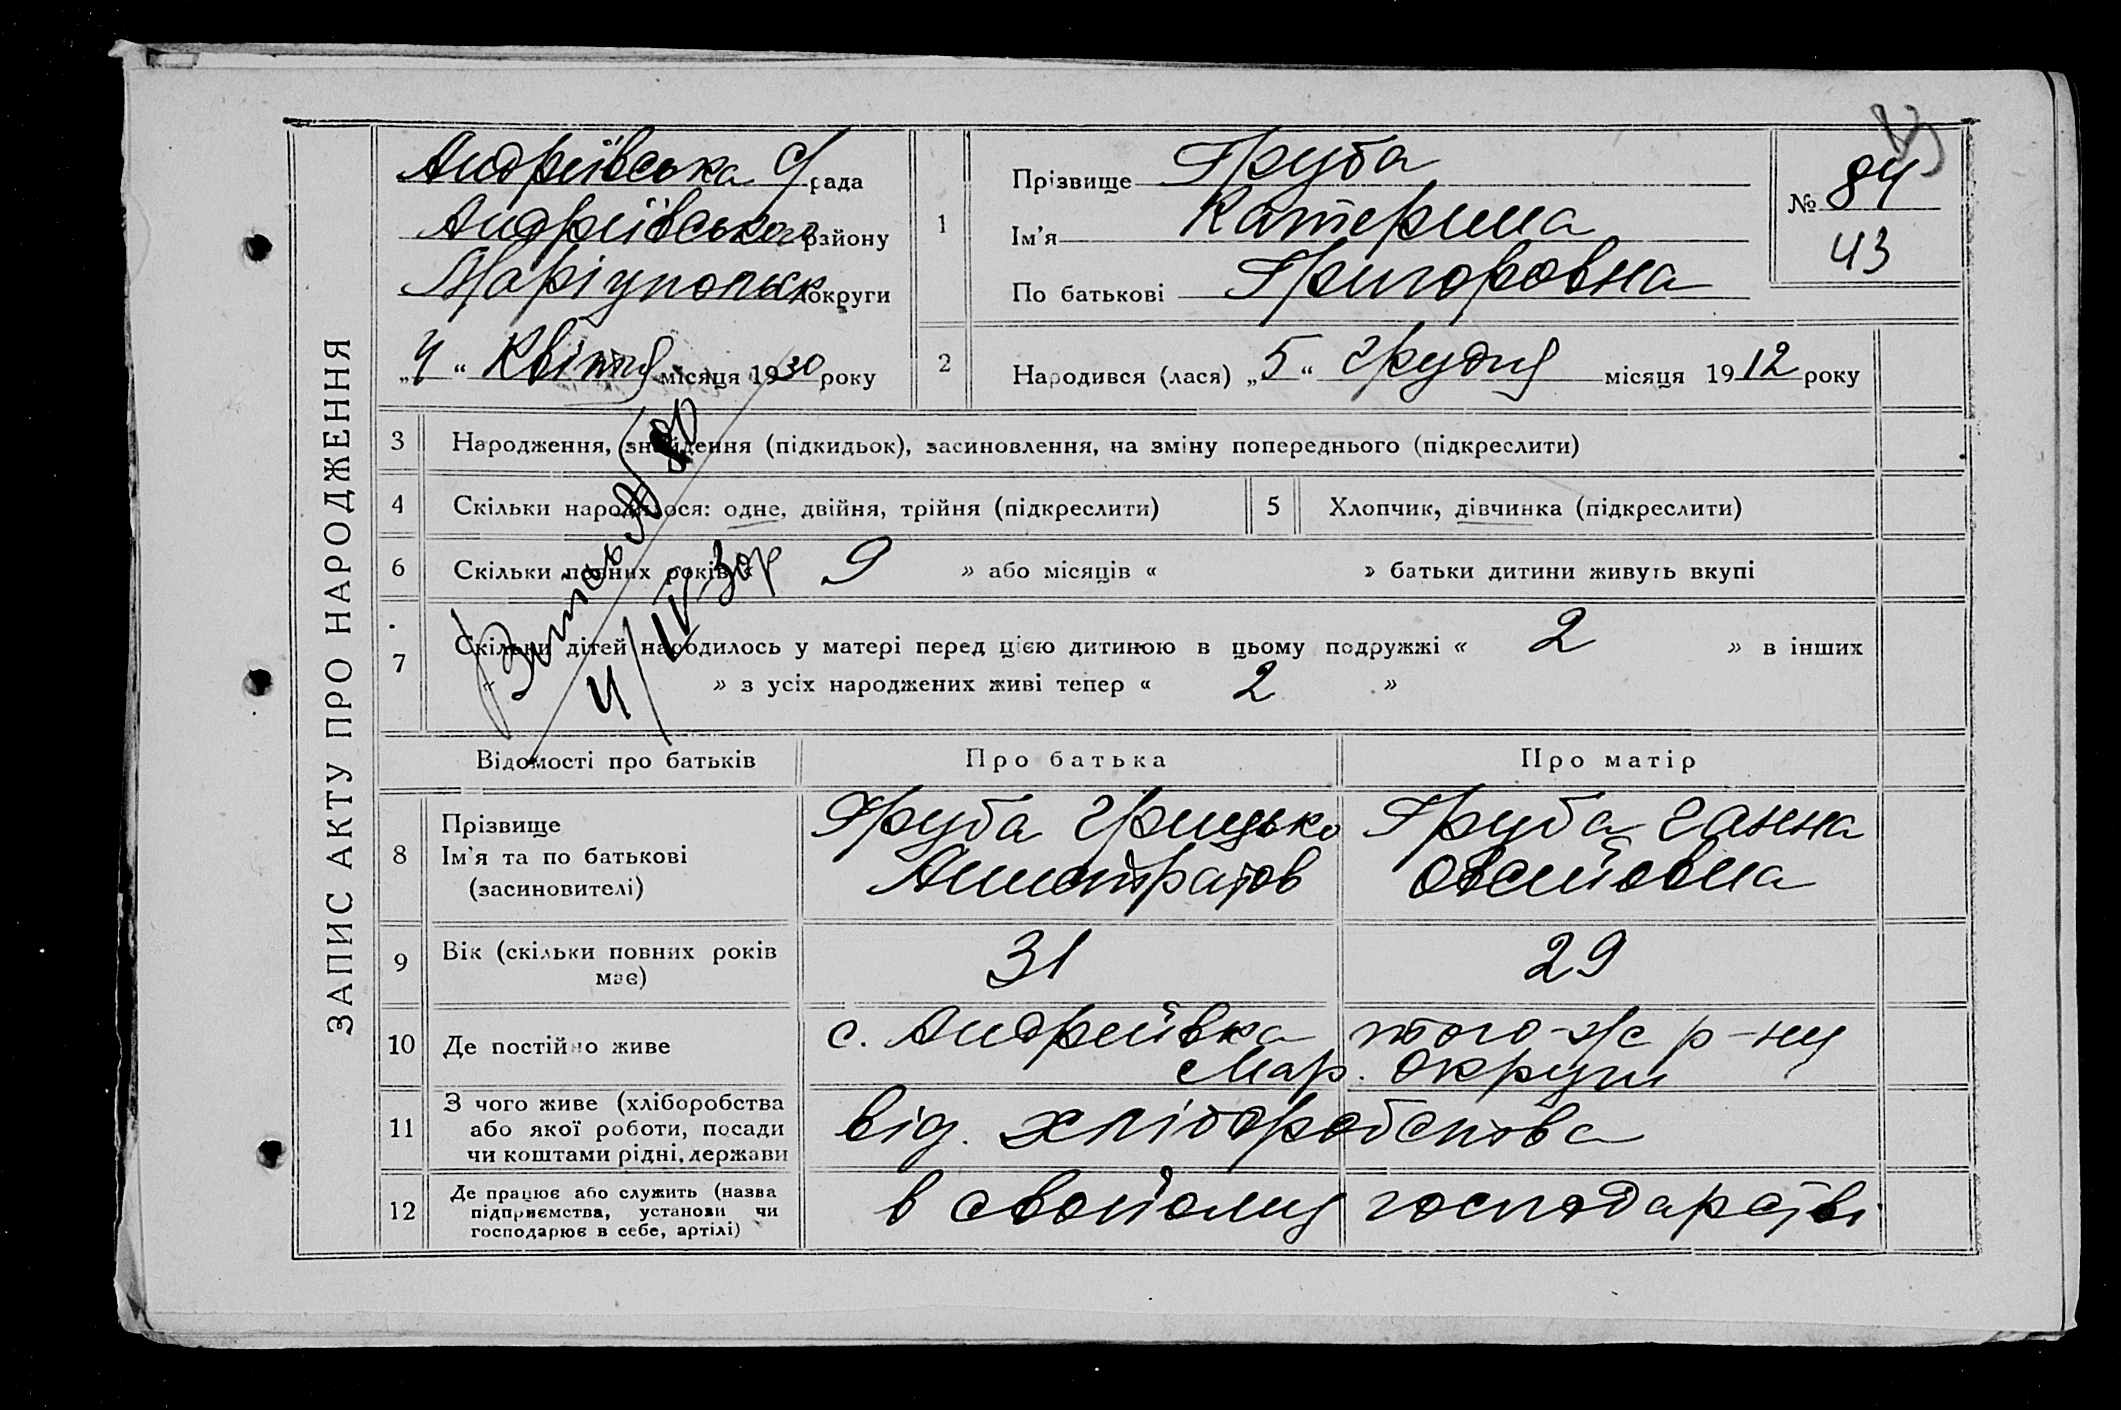 ЗАПИС АКТУ ПРО НАРОДЖЕННЯ
Андріївська с/рада
Андріївського району
Маріупольськ округи
„4“ Квітня місяця 1930 року
1
Прізвище Груба
Ім'я Катерина
По батькові Григоровна
№ 84
43
2
Народився (лася) „5“ грудня місяця 1912 року
3 Народження, знайдення (підкидьок), засиновлення, на зміну попереднього (підкреслити)
4 Скільки народилося: одне, двійня, трійня (підкреслити)
5 Хлопчик, дівчинка (підкреслити)
6 Скільки повних років « 9 » або місяців « » батьки дитини живуть вкупі
7 Скільки дітей народилось у матері перед цією дитиною в цьому подружжі « 2 » в інших
« » з усіх народжених живі тепер « 2 »
Витяг
4/IV 30р
Відомості про батьків
Про батька
Про матір
8 Прізвище
Ім'я та по батькові
(засиновителі)
Груба Грицько
Груба Ганна
Овсиїовна
9 Вік (скільки повних років
має)
31
29
10 Де постійно живе
с. Андреївка того-ж р-ну
Мар. округи
11 З чого живе (хліборобства
або якої роботи, посади
чи коштами рідні, держави
від. хліборобства
12 Де працює або служить (назва
підприємства, установи чи
господарює в себе, артілі)
в своїому господарстві